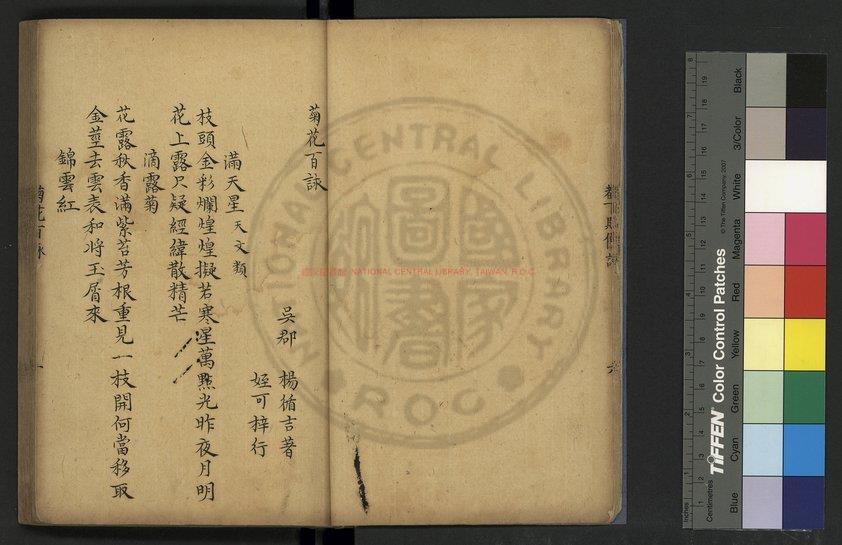 菊花百詠
吳郡 楊循吉著
姪可梓行
滿天星天文類
枝頭金彩斕煌煌擬若寒星萬點光昨夜月明
花上露只疑經緯散精芒
滴露菊
花露秋香滿紫苔芳根重見一枝開何當移取
金莖去雲表和將玉屑來
錦雲紅
菊花百詠
一
六
國家圖書館
NATIONAL CENTRAL LIBRARY, TAIWAN, R.O.C.
NATIONAL CENTRAL LIBRARY
R.O.C.
TIFFEN Color Control Patches
© The Tiffen Company, 2007
Centimetres
Inches
Blue
Cyan
Green
Yellow
Red
Magenta
White
3/Color
Black